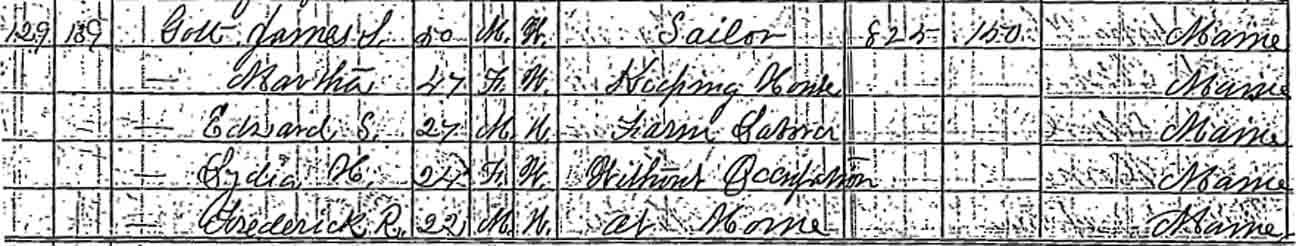 129 139 Gott James S. 50 M. W. Sailor 825 150 Maine
— Martha 47 F. W. Keeping House Maine
— Edward S. 27 M. W. Farm Laborer Maine
— Lydia H. 24 F. W. Without Occupation Maine
— Frederick R. 22 M. W. at Home Maine